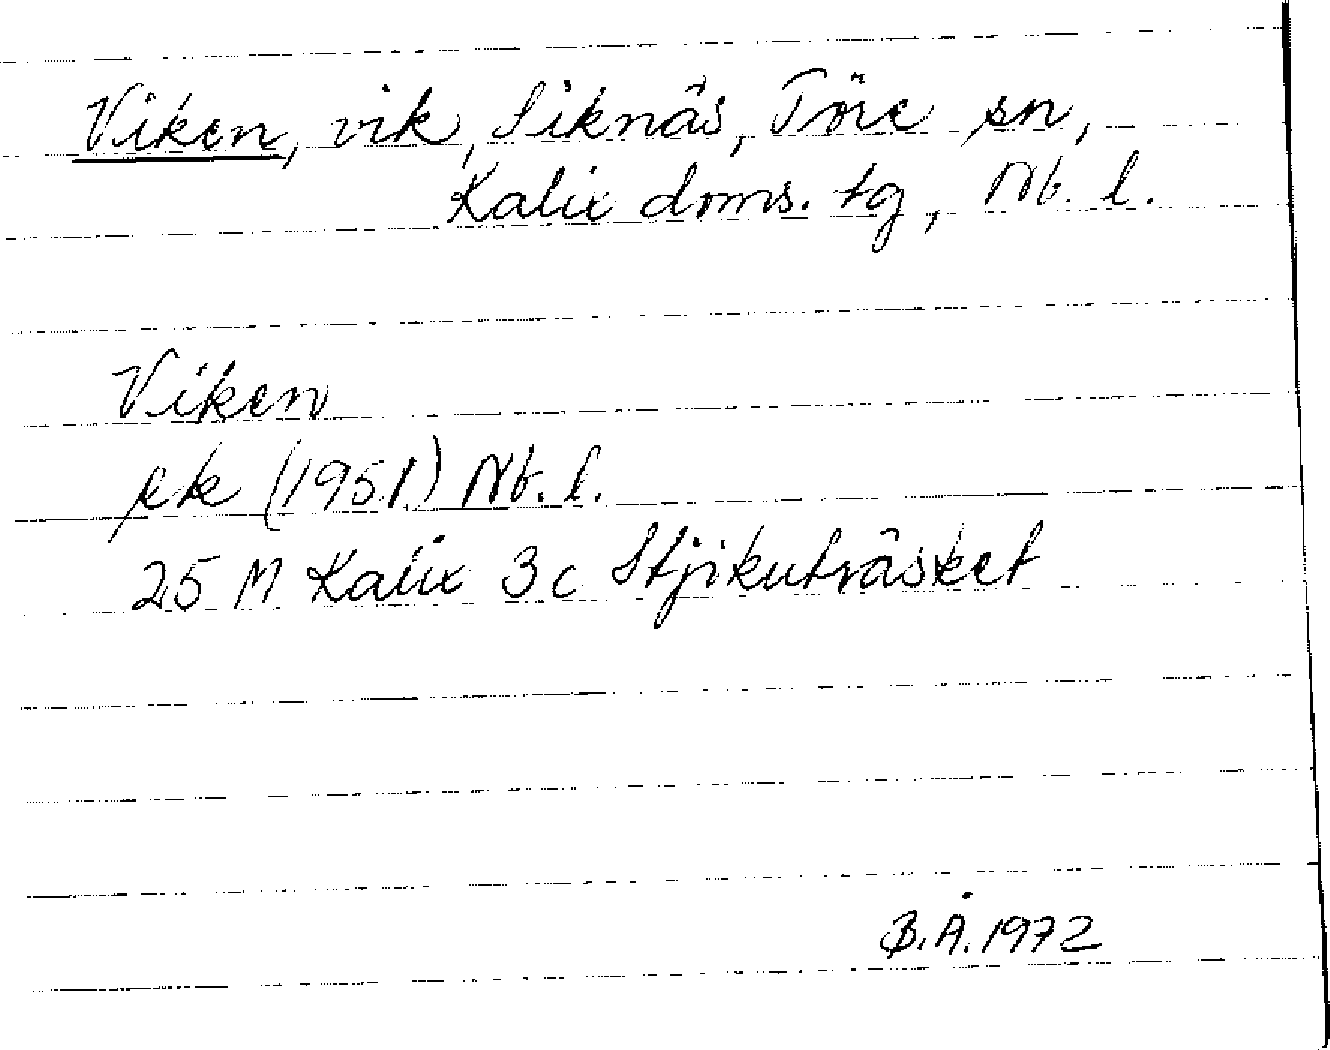 Viken, vik, Siknäs, Töre sn,
Kalix doms. tg, Nb. l.
Viken
ek (1951) Nb. l.
25 M Kalix 3c Stjikuträsket
B.Å. 1972